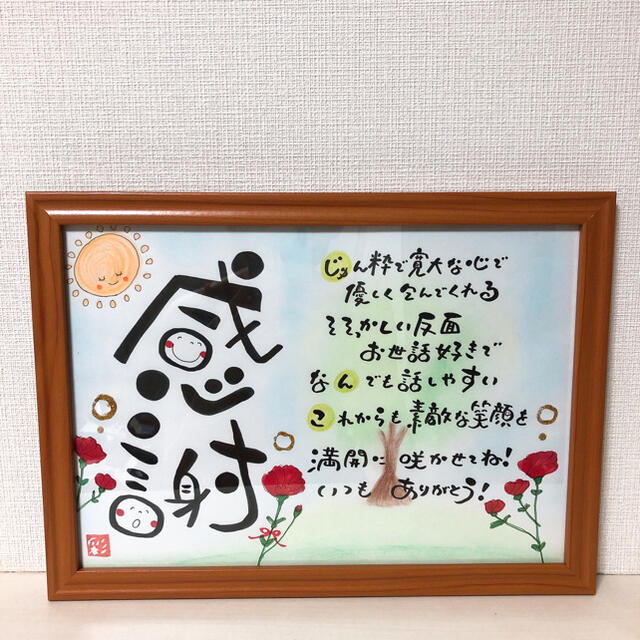 感謝
じゅん粋で寛大な心で
優しく包んでくれる
そそっかしい反面
お世話好きで
なんでも話しやすい
これからも素敵な笑顔を
満開に咲かせてね!
いつもありがとう!